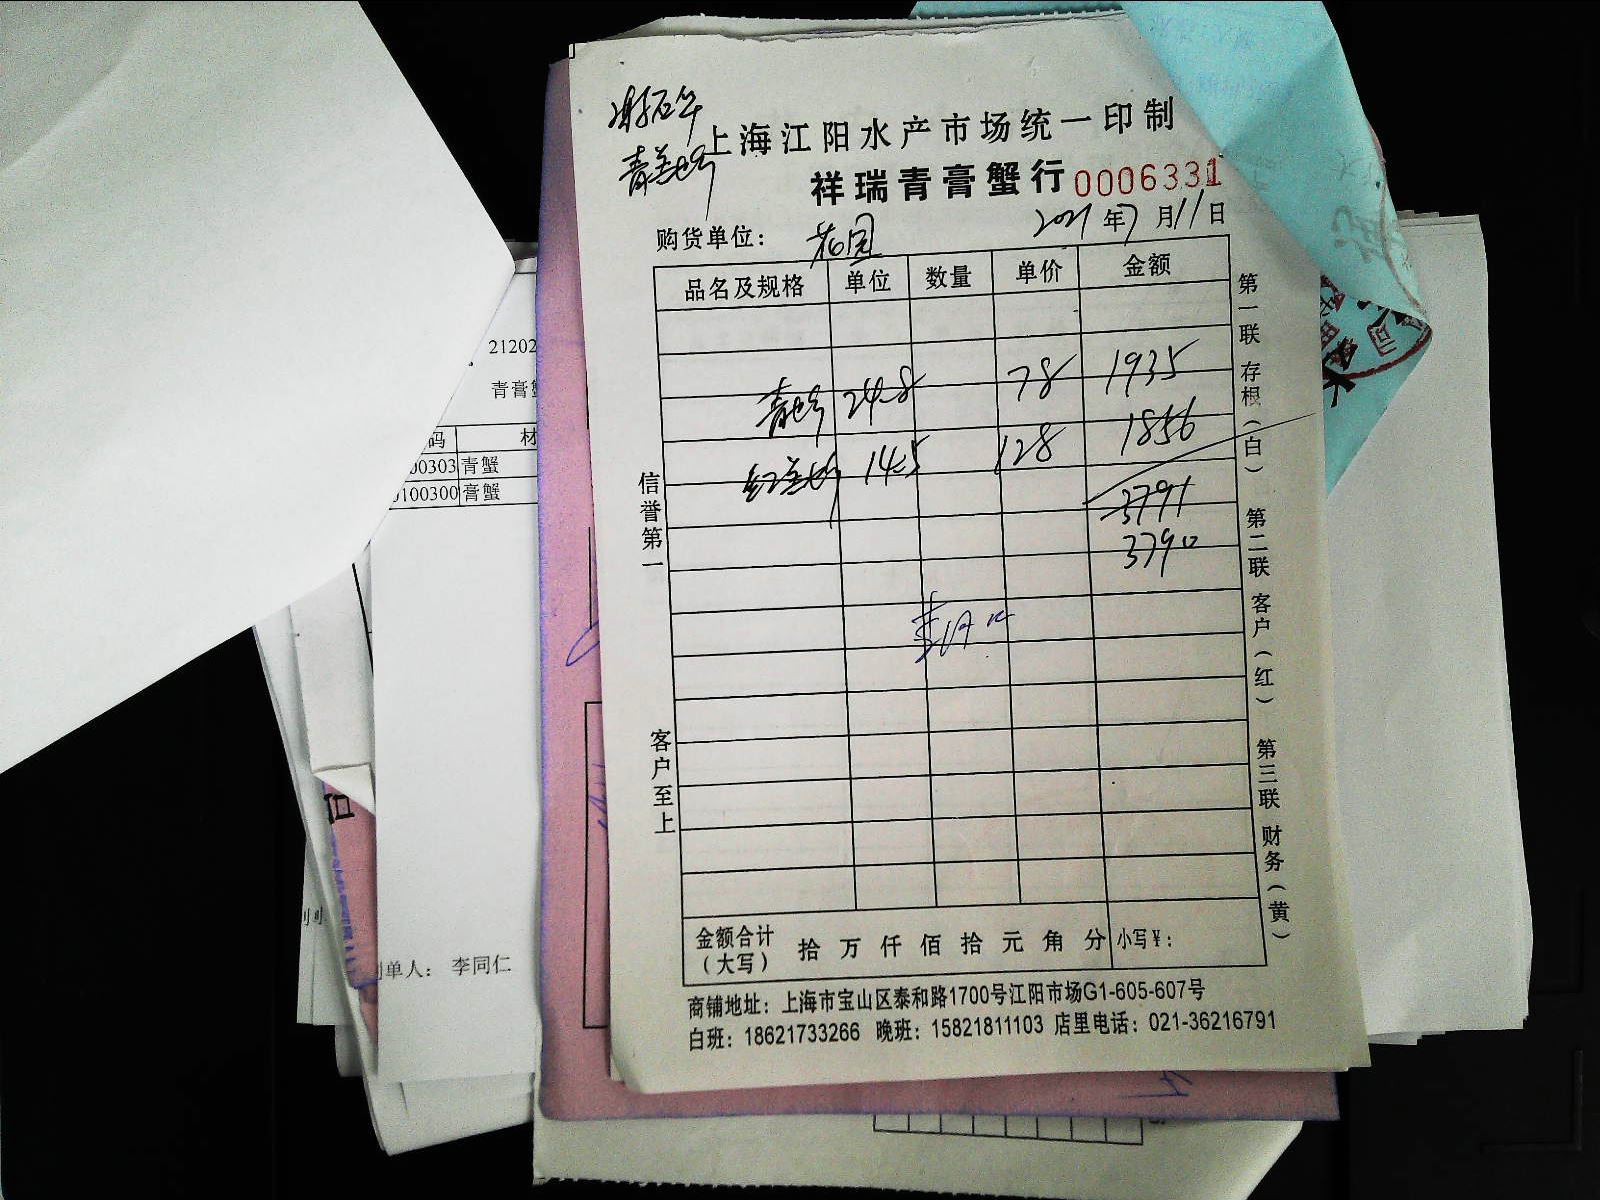 上海江阳水产市场统一印制
祥瑞青膏蟹行 0006331
购货单位： 花园 2021年7月11日
品名及规格 单位 数量 单价 金额
24-8 78 1935
14-5 128 1856
3791
3790
信誉第一
客户至上
第一联 存根（白） 第二联 客户（红） 第三联 财务（黄）
金额合计（大写） 拾 万 仟 佰 拾 元 角 分 小写¥：
商铺地址：上海市宝山区泰和路1700号江阳市场G1-605-607号
白班：18621733266 晚班：15821811103 店里电话：021-36216791
21202
青膏蟹
码 材
00303 青蟹
0100300 膏蟹
制单人： 李同仁